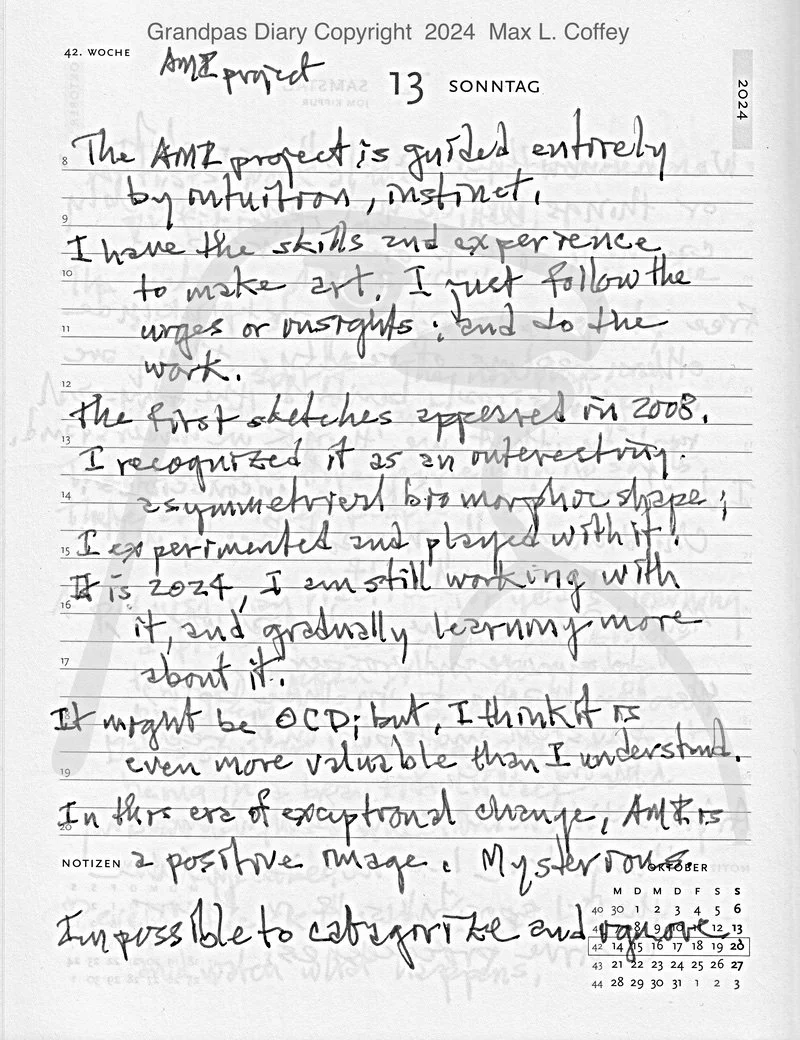 Grandpas Diary Copyright 2024 Max L. Coffey
42. WOCHE
AMI project
13 SONNTAG
2024
8 The AMI project is guided entirely
by intuition, instinct.
9
I have the skills and experience
10 to make art. I just follow the
11 urges or insights; and do the
work.
12
The first sketches appeared in 2008.
13
I recognized it as an interesting.
14 asymmetrical biomorphic shape;
15 I experimented and played with it!
It is 2024, I am still working with
16
it, and gradually learning more
17
about it.
18 It might be OCD; but, I think it is
even more valuable than I understand.
19
In this era of exceptional change, AMI is
20
NOTIZEN a positive image. Mysterious.
OKTOBER
M D M D F S S
40 30 1 2 3 4 5 6
Impossible to categorize and ignore
41 7 8 9 10 11 12 13
42 14 15 16 17 18 19 20
43 21 22 23 24 25 26 27
44 28 29 30 31 1 2 3